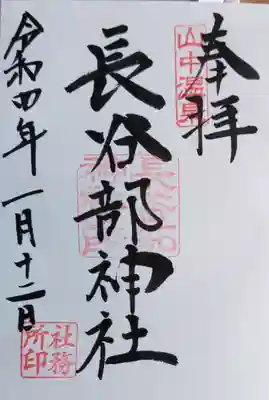 奉拝
山中温泉
長谷部神社
令和四年一月十二日
社務
所印